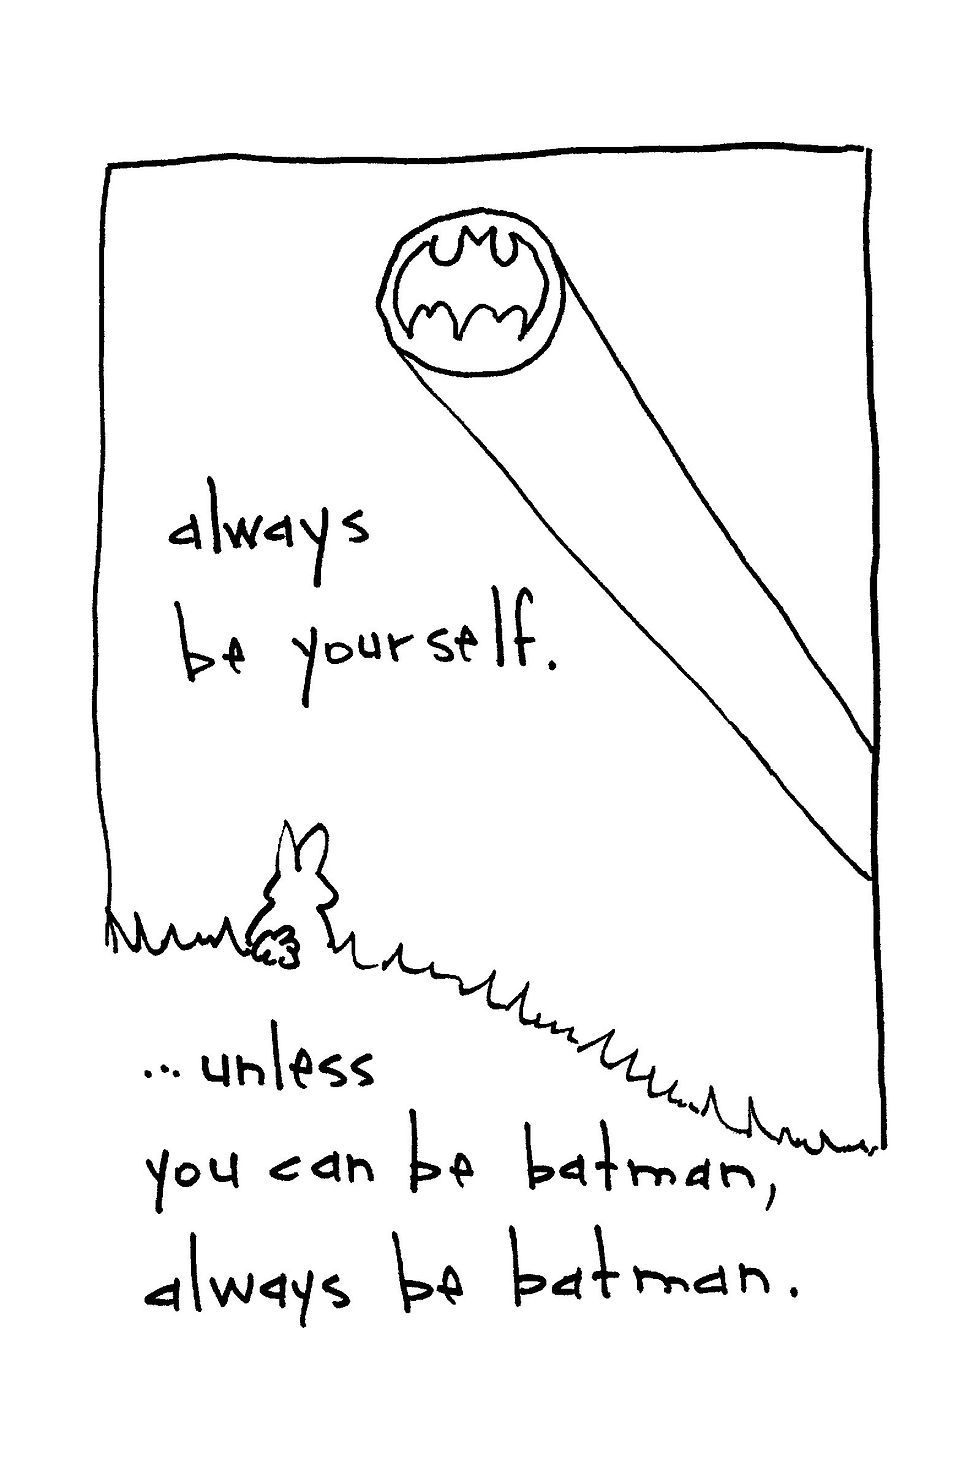 always
be yourself.
...unless
you can be batman,
always be batman.